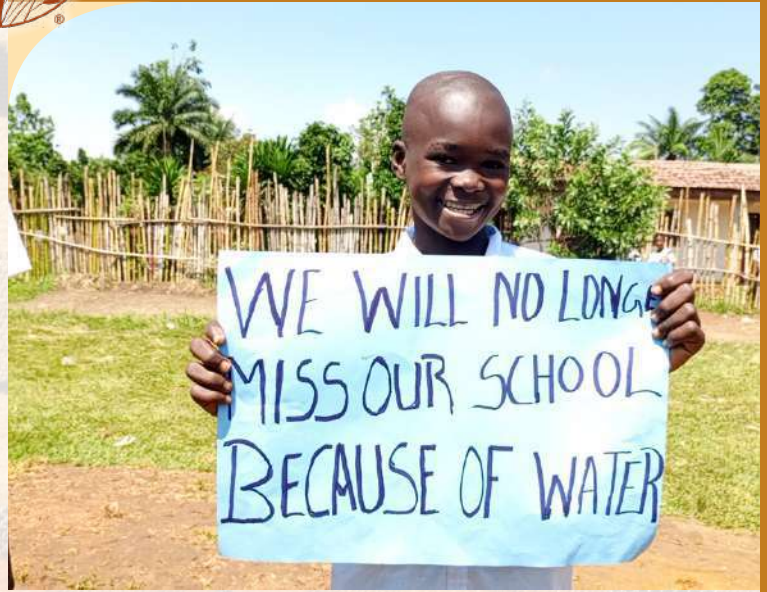 WE WILL NO LONGE
MISS OUR SCHOOL
BECAUSE OF WATER